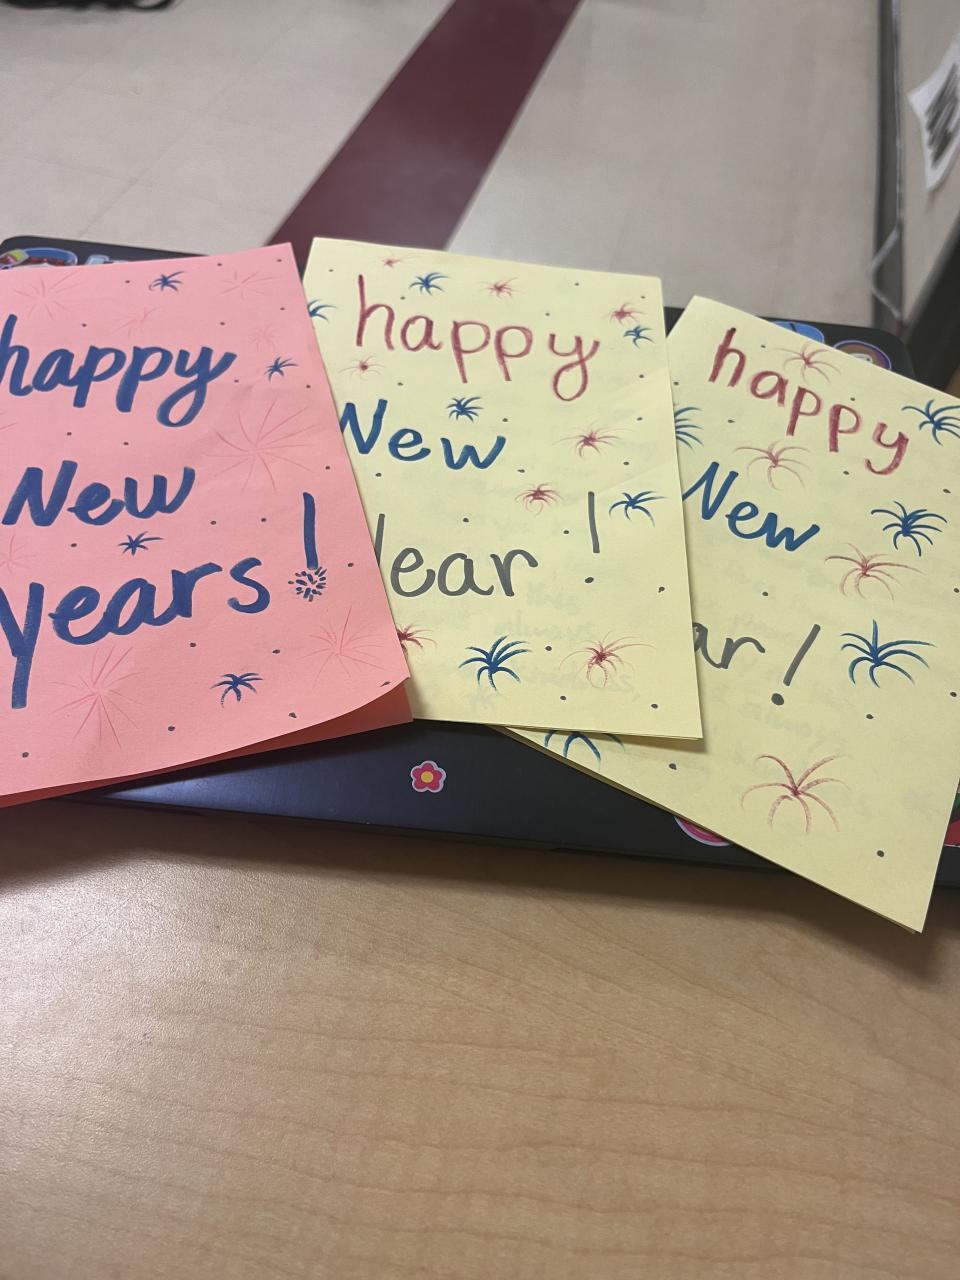 happy
New
years!
happy
New
Year!
happy
New
ar!